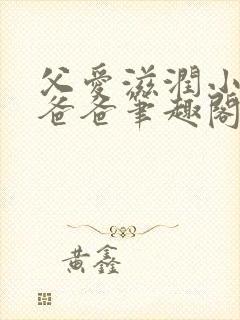 父愛滋潤小
爸爸筆趣閣
黃鑫